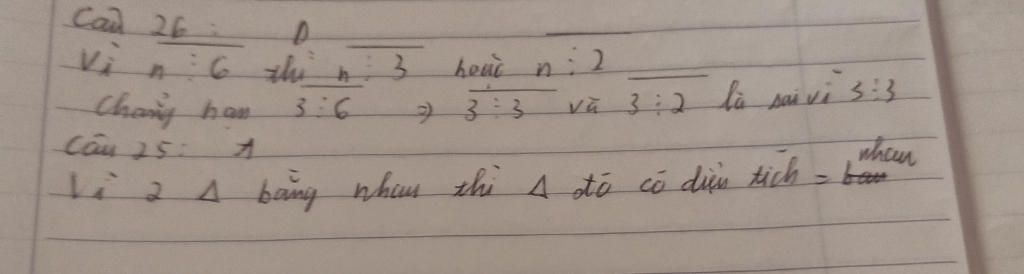 Câu 26: D
Vì \overline{n ⋮ 6} thì \overline{n ⋮ 3} hoặc \overline{n ⋮ 2}
Chẳng hạn \overline{3 ⋮ 6} => \overline{3 ⋮ 3} và \overline{3 ⋮ 2} là sai vì 3 ⋮ 3
Câu 25: A
Vì 2 Δ bằng nhau thì Δ đó có diện tích = nhau